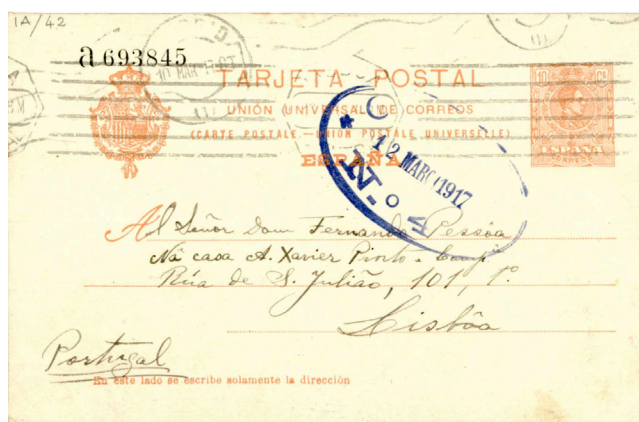 IA/42
a 693845
10 MAR 17
TARJETA POSTAL
UNIÓN UNIVERSAL DE CORREOS
(CARTE POSTALE—UNION POSTALE UNIVERSELLE)
ESPAÑA
10 Cs
ESPAÑA
CORREOS
12 MARÇO 1917
Al Señor Dom Fernando Pessôa
Na casa A. Xavier Pinto & Compª
Rúa de S. Julião, 101, 1º
Lisbôa
Portugal
En este lado se escribe solamente la dirección